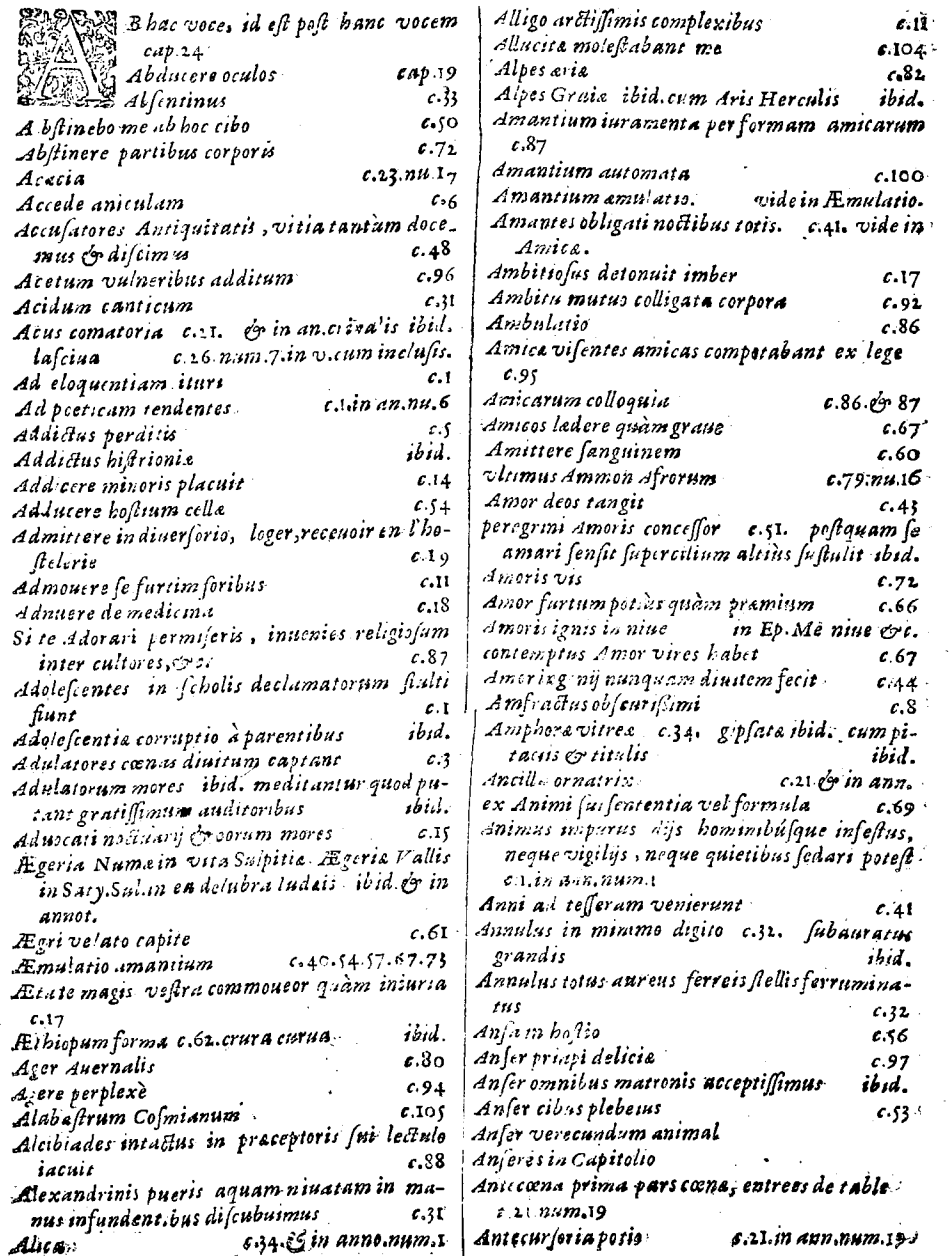 AB hac voce, id eſt poſt hanc vocem
cap.24
Abducere oculos cap.19
Abſentinus c.33
Abſtinebo me ab hoc cibo c.50
Abſtinere partibus corporis c.72
Acacia c.23.nu.17
Accede aniculam c.6
Accuſatores Antiquitatis, vitia tantùm doce-
mus & diſcimus c.48
Acetum vulneribus additum c.96
Acidum canticum c.31
Acus comatoria c.21. & in an. ibid.
laſciua c.26.num.7.in v.cum incluſis.
Ad eloquentiam ituri c.1
Ad poeticam tendentes c.1.in an.nu.6
Addictus perditis c.5
Addictus hiſtrioniæ ibid.
Addicere minoris placuit c.14
Adducere hoſtium cellæ c.54
Admittere in diuerſorio, loger,receuoir en l'ho-
ſtelerie c.19
Admouere ſe furtim foribus c.11
Adnuere de medicina c.18
Si te Adorari permiſeris, inuenies religioſum
inter cultores,&c. c.87
Adoleſcentes in ſcholis declamatorum ſtulti
fiunt c.1
Adoleſcentiæ corruptio à parentibus ibid.
Adulatores cœnas diuitum captant c.3
Adulatorum mores ibid. meditantur quod pu-
tant gratiſſimum auditoribus ibid.
Aduocati noctuarij & eorum mores c.15
Ægeria Numæ in vita Sulpitiæ. Ægeriæ Vallis
in Saty.Sul.in ea delubra Iudæis ibid.& in
annot.
Ægri velato capite c.61
Æmulatio amantium c.40.54.57.67.73
Ætate magis veſtra commoueor quàm iniuria
c.17
Æthiopum forma c.62.crura curua ibid.
Ager Auernalis c.80
Agere perplexè c.94
Alabaſtrum Coſmianum c.105
Alcibiades intactus in præceptoris ſui lectulo
iacuit c.88
Alexandrinis pueris aquam niuatam in ma-
nus infundentibus diſcubuimus c.31
Alica c.34.& in anno.num.1
Alligo arctiſſimis complexibus c.11
Allucitæ moleſtabant me c.104
Alpes æriæ c.82
Alpes Graiæ ibid.cum Aris Herculis ibid.
Amantium iuramenta per formam amicarum
c.87
Amantium automata c.100
Amantium æmulatio. vide in Æmulatio.
Amantes obligati noctibus totis. c.41. vide in
Amicæ.
Ambitioſus detonuit imber c.17
Ambitu mutuo colligata corpora c.92
Ambulatio c.86
Amicæ viſentes amicas compotabant ex lege
c.95
Amicarum colloquia c.86.& 87
Amicos lædere quàm graue c.67
Amittere ſanguinem c.60
vltimus Ammon Afrorum c.79.nu.16
Amor deos tangit c.43
peregrini Amoris conceſſor c.51. poſtquam ſe
amari ſenſit ſupercilium altiùs ſuſtulit ibid.
Amoris vis c.72
Amor furtum potiùs quàm præmium c.66
Amoris ignis in niue in Ep.Mē niue &c.
contemptus Amor vires habet c.67
Amor ingenij nunquam diuitem fecit c.44
Amfractus obſcuriſſimi c.8
Amphoræ vitreæ c.34. gipſatæ ibid. cum pi-
taciis & titulis ibid.
Ancilla ornatrix c.21.& in ann.
ex Animi ſui ſententia vel formula c.69
Animus impurus dijs hominibúſque infeſtus,
neque vigilijs, neque quietibus ſedari poteſt
c.1.in ann.num.1
Anni ad teſſeram venierunt c.41
Annulus in minimo digito c.32. ſubauratus
grandis ibid.
Annulus totus aureus ferreis ſtellis ferrumina-
tus c.32
Anſa in hoſtio c.56
Anſer priapi deliciæ c.97
Anſer omnibus matronis acceptiſſimus ibid.
Anſer cibus plebeius c.53
Anſer verecundum animal
Anſeres in Capitolio
Antecœna prima pars cœnæ, entrees de table
c.21.num.19
Antecurſoria potio c.21.in ann.num.19